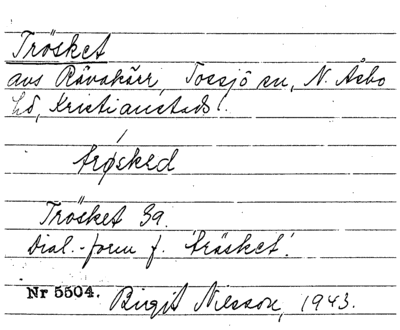 Trösket
avs Rävakärr, Tossjö sn, N. Åsbo
hd, Kristianstads l.
trøsked
Trösket 3a.
Dial.-form f. 'träsket'.
Nr 5504. Birgit Nilsson, 1943.